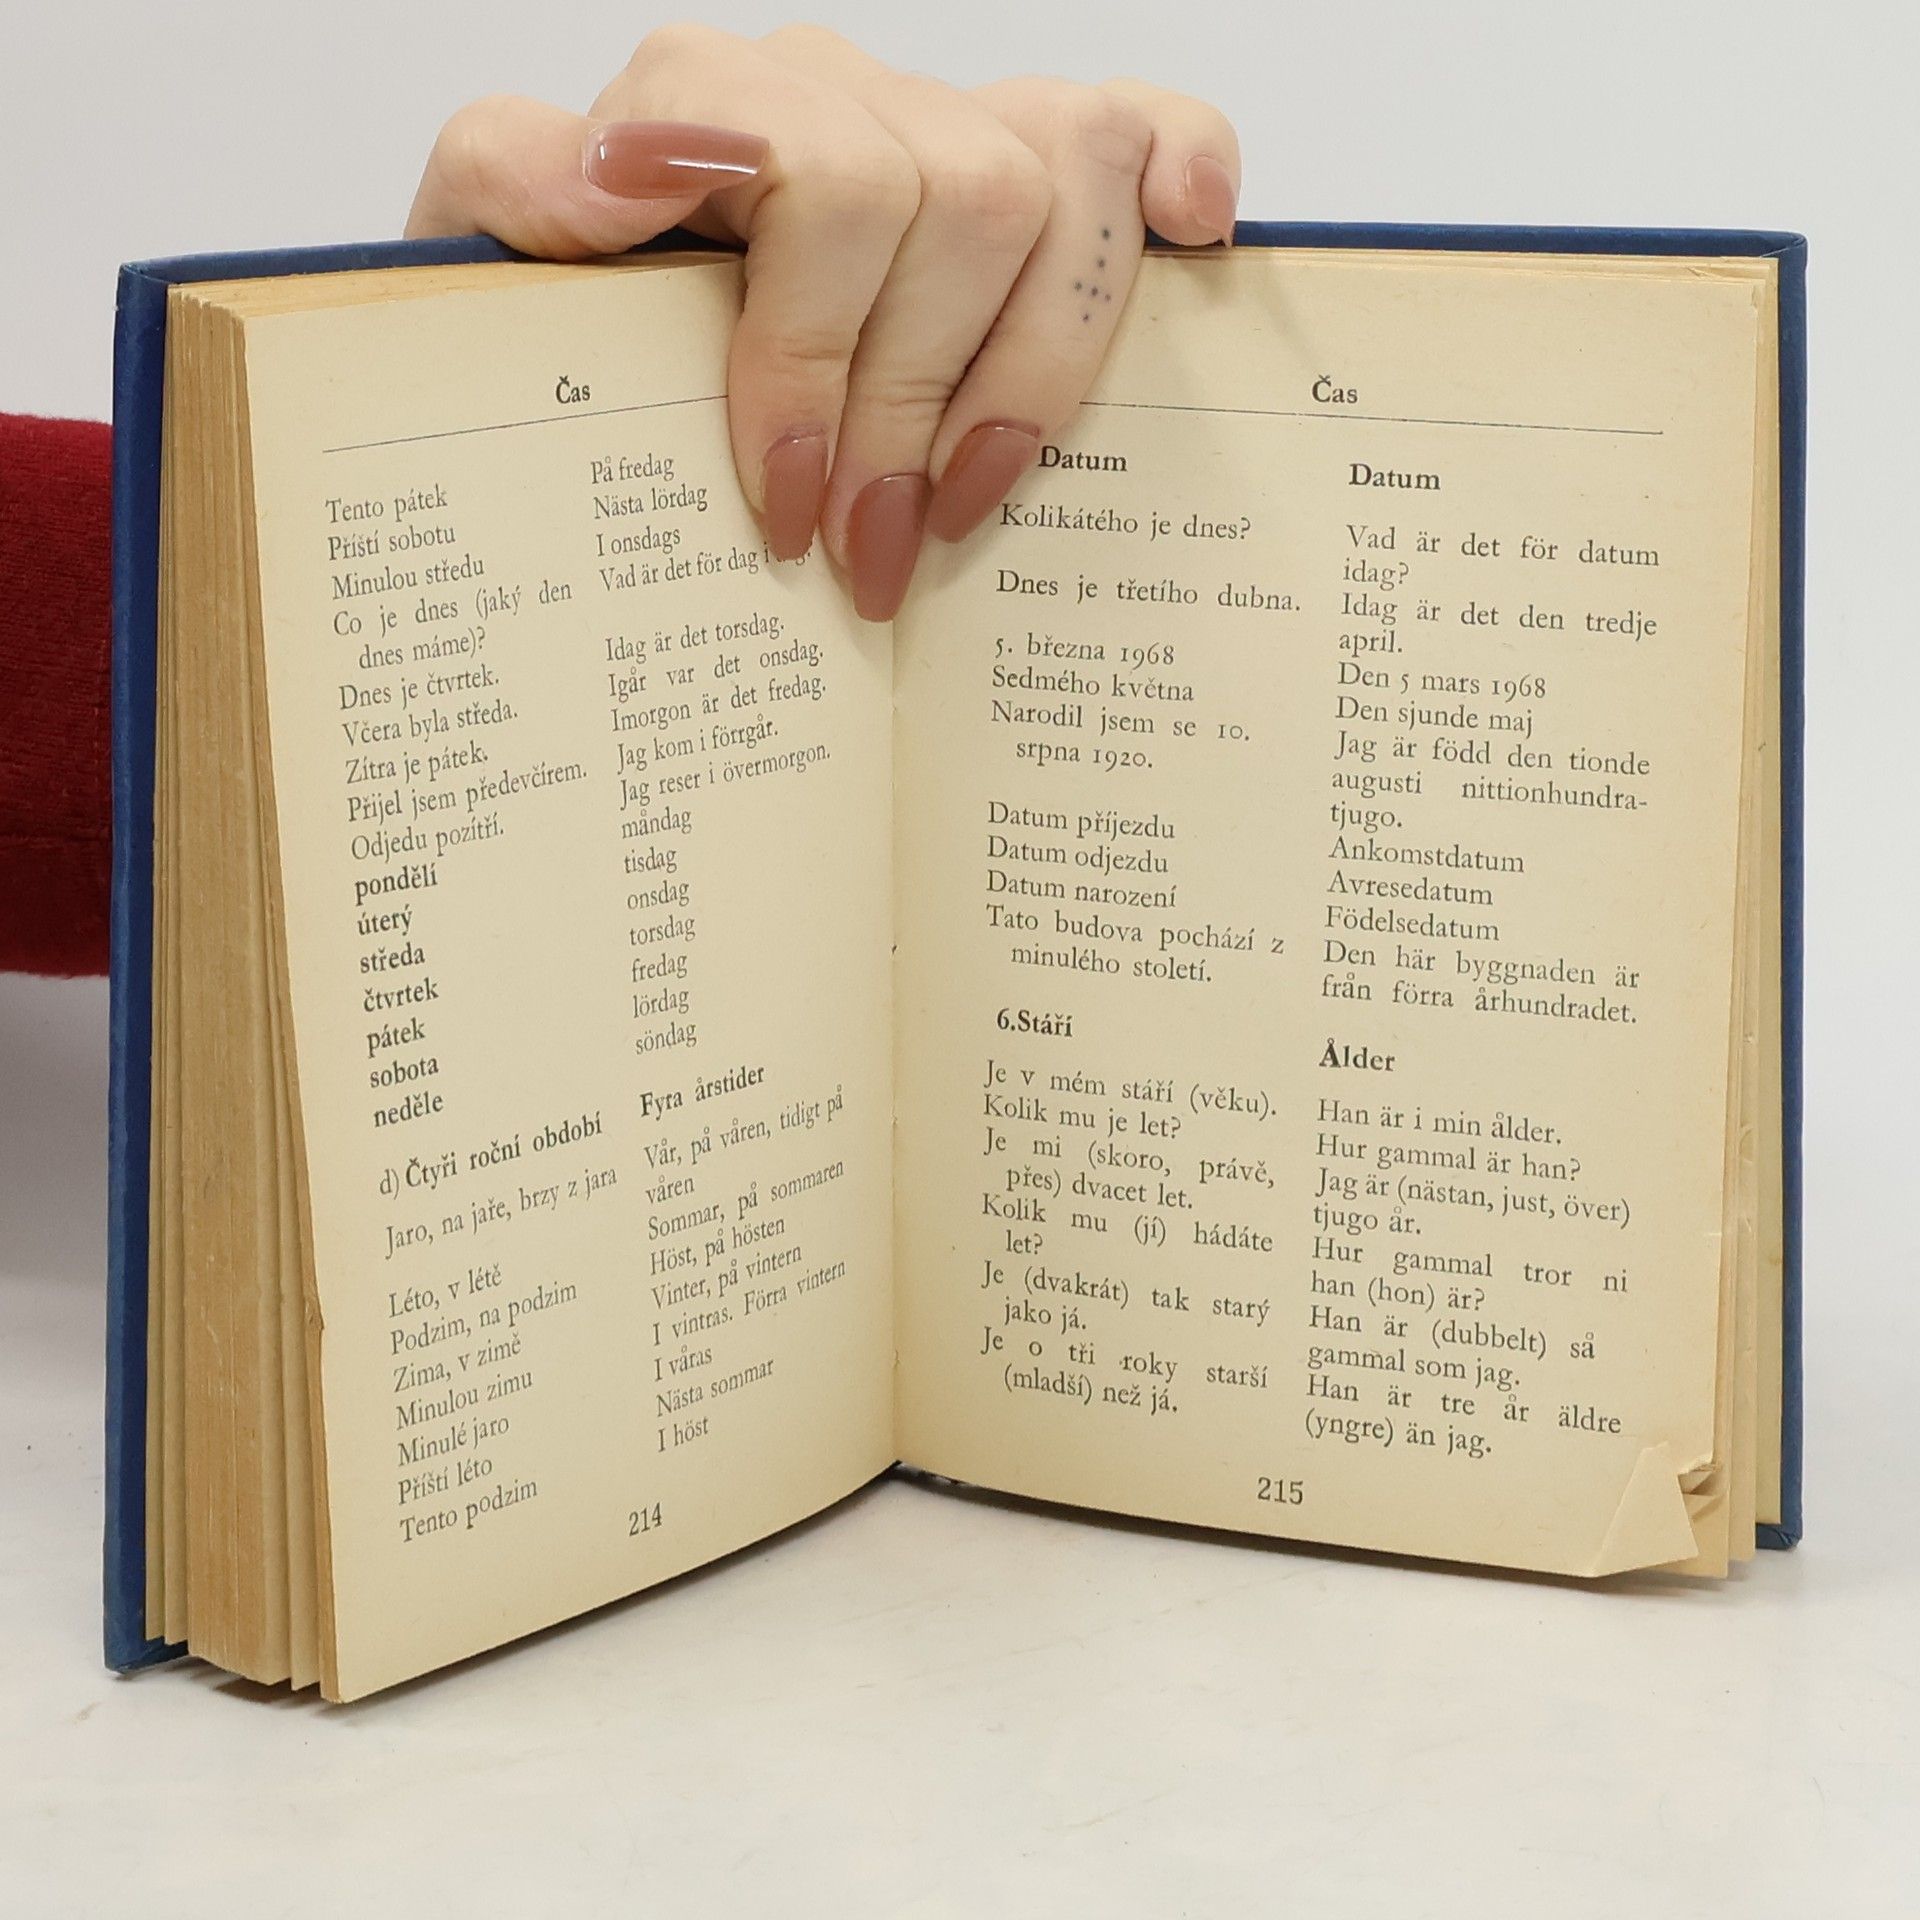 Čas
Tento pátek
Příští sobotu
Minulou středu
Co je dnes (jaký den
dnes máme)?
Dnes je čtvrtek.
Včera byla středa.
Zítra je pátek.
Přijel jsem předevčírem.
Odjedu pozítří.
pondělí
úterý
středa
čtvrtek
pátek
sobota
neděle
d) Čtyři roční období
Jaro, na jaře, brzy z jara
Léto, v létě
Podzim, na podzim
Zima, v zimě
Minulou zimu
Minulé jaro
Příští léto
Tento podzim
På fredag
Nästa lördag
I onsdags
Vad är det för dag i
Idag är det torsdag.
Igår var det onsdag.
Imorgon är det fredag.
Jag kom i förrgår.
Jag reser i övermorgon.
måndag
tisdag
onsdag
torsdag
fredag
lördag
söndag
Fyra årstider
Vår, på våren, tidigt på
våren
Sommar, på sommaren
Höst, på hösten
Vinter, på vintern
I vintras. Förra vintern
I våras
Nästa sommar
I höst
214
Čas
Datum
Kolikátého je dnes?
Dnes je třetího dubna.
5. března 1968
Sedmého května
Narodil jsem se 10.
srpna 1920.
Datum příjezdu
Datum odjezdu
Datum narození
Tato budova pochází z
minulého století.
6.Stáří
Je v mém stáří (věku).
Kolik mu je let?
Je mi (skoro, právě,
přes) dvacet let.
Kolik mu (jí) hádáte
let?
Je (dvakrát) tak starý
jako já.
Je o tři roky starší
(mladší) než já.
Datum
Vad är det för datum
idag?
Idag är det den tredje
april.
Den 5 mars 1968
Den sjunde maj
Jag är född den tionde
augusti nittionhundra-
tjugo.
Ankomstdatum
Avresedatum
Födelsedatum
Den här byggnaden är
från förra århundradet.
Ålder
Han är i min ålder.
Hur gammal är han?
Jag är (nästan, just, över)
tjugo år.
Hur gammal tror ni
han (hon) är?
Han är (dubbelt) så
gammal som jag.
Han är tre år äldre
(yngre) än jag.
215